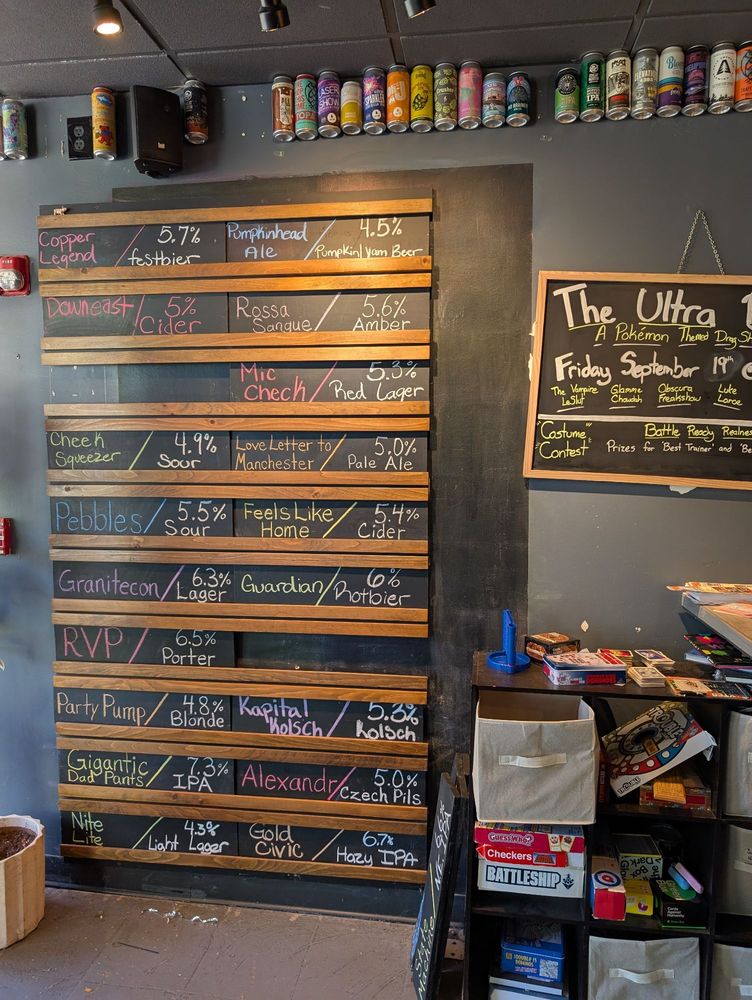 Copper
Legend
5.7%
festbier
Pumpkinhead
Ale
4.5%
Pumpkin/Yam Beer
Downeast
5%
Cider
Rossa
Sangue
5.6%
Amber
Mic
Check
5.3%
Red Lager
Cheek
Squeezer
4.9%
Sour
Love Letter to
Manchester
5.0%
Pale Ale
Pebbles
5.5%
Sour
Feels Like
Home
5.4%
Cider
Granitecon
6.3%
Lager
Guardian
6%
Rotbier
RVP
6.5%
Porter
Party Pump
4.8%
Blonde
Kapital
Kolsch
5.3%
Kolsch
Gigantic
Dad Pants
7.3%
IPA
Alexandr
5.0%
Czech Pils
Nite
Lite
4.3%
Light Lager
Gold
Civic
6.7%
Hazy IPA
The Ultra
A Pokémon Themed Drag
Friday September 19th
The Vampire
LeSlut
Glamme
Chaudah
Obscura
Freakshow
Luke
Laroe
"Costume"
Contest
Battle Ready Realness
Prizes for 'Best Trainer' and
LASER
SHOW
IPA
FIRE
TROUBLE
GUESS WHO?
Checkers
BATTLESHIP
Cards
Against
Humanity
DOUBLE
DOMINOES